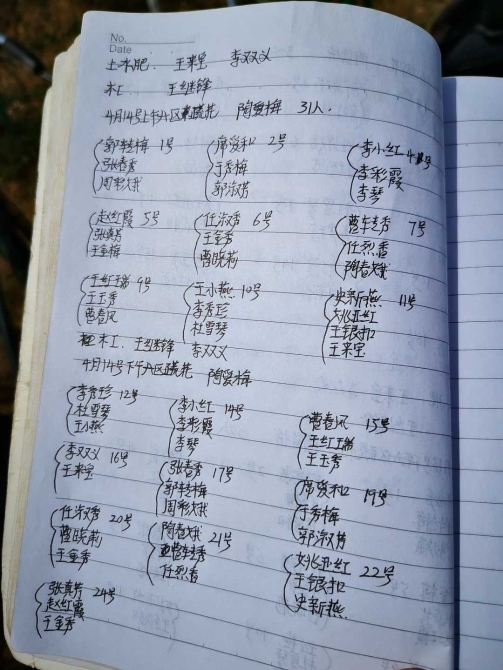 No.
Date
土水肥. 王来宝 李双义
木工. 王继锋
4月14号上午A区疏花 陶爱梅 31人.
郭转梅 1号 席爱和 2号 李小红 4号
张春秀 于秀梅 李彩霞
周彩娥 郭淑芳 李琴
赵红霞 5号 任淑秀 6号 曹转秀 7号
张真芳 王金秀 任烈香
王金梅 曹晓莉 陶春娥
王红瑞 9号 王小燕 10号 史新燕 11号
王玉秀 李秀珍 姚亚红
曹春凤 杜雪琴 王银扣
王来宝
木工. 王继锋 李双义
4月14号下午A区疏花 陶爱梅
李秀珍 12号 李小红 14号 曹春凤 15号
杜雪琴 李彩霞 王红瑞
王小燕 李琴 王玉秀
李双义 16号 张春秀 17号 席爱和 19号
王来宝 郭转梅 于秀梅
周彩娥 郭淑芳
任淑秀 20号 陶春娥 21号 姚亚红 22号
曹晓莉 曹转秀 王银扣
王金秀 任烈香 史新燕
张真芳 24号
赵红霞
王金秀